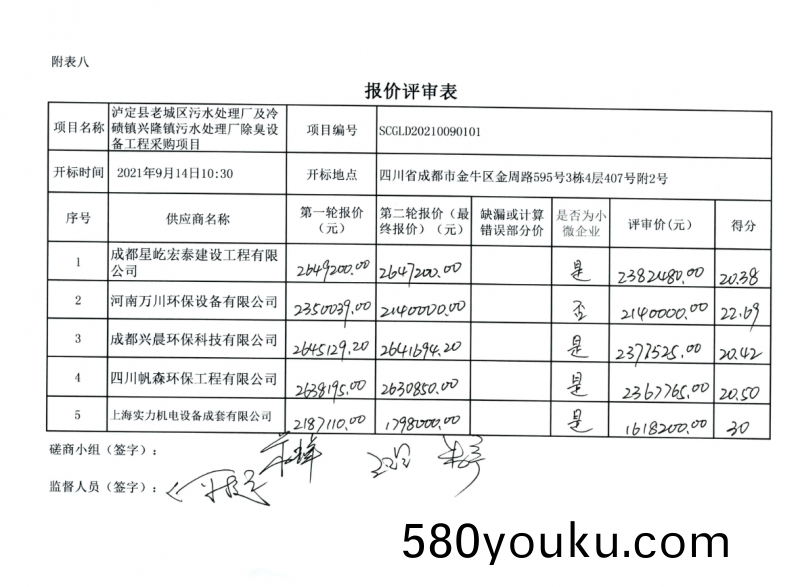 附表八
报价评审表
项目名称 泸定县老城区污水处理厂及冷
碛镇兴隆镇污水处理厂除臭设
备工程采购项目 项目编号 SCGLD20210090101
开标时间 2021年9月14日10:30 开标地点 四川省成都市金牛区金周路595号3栋4层407号附2号
序号 供应商名称 第一轮报价
（元） 第二轮报价（最
终报价）（元） 缺漏或计算
错误部分价 是否为小
微企业 评审价(元) 得分
1 成都星屹宏泰建设工程有限
公司 2649200.00 2647200.00 是 2382480.00 20.38
2 河南万川环保设备有限公司 2350039.00 2140000.00 否 2140000.00 22.69
3 成都兴晨环保科技有限公司 2645129.20 2641694.20 是 2377525.00 20.42
4 四川帆森环保工程有限公司 2638195.00 2630850.00 是 2367765.00 20.50
5 上海实力机电设备成套有限公司 2187110.00 1798000.00 是 1618200.00 30
磋商小组（签字）：
监督人员（签字）：
580youku.com